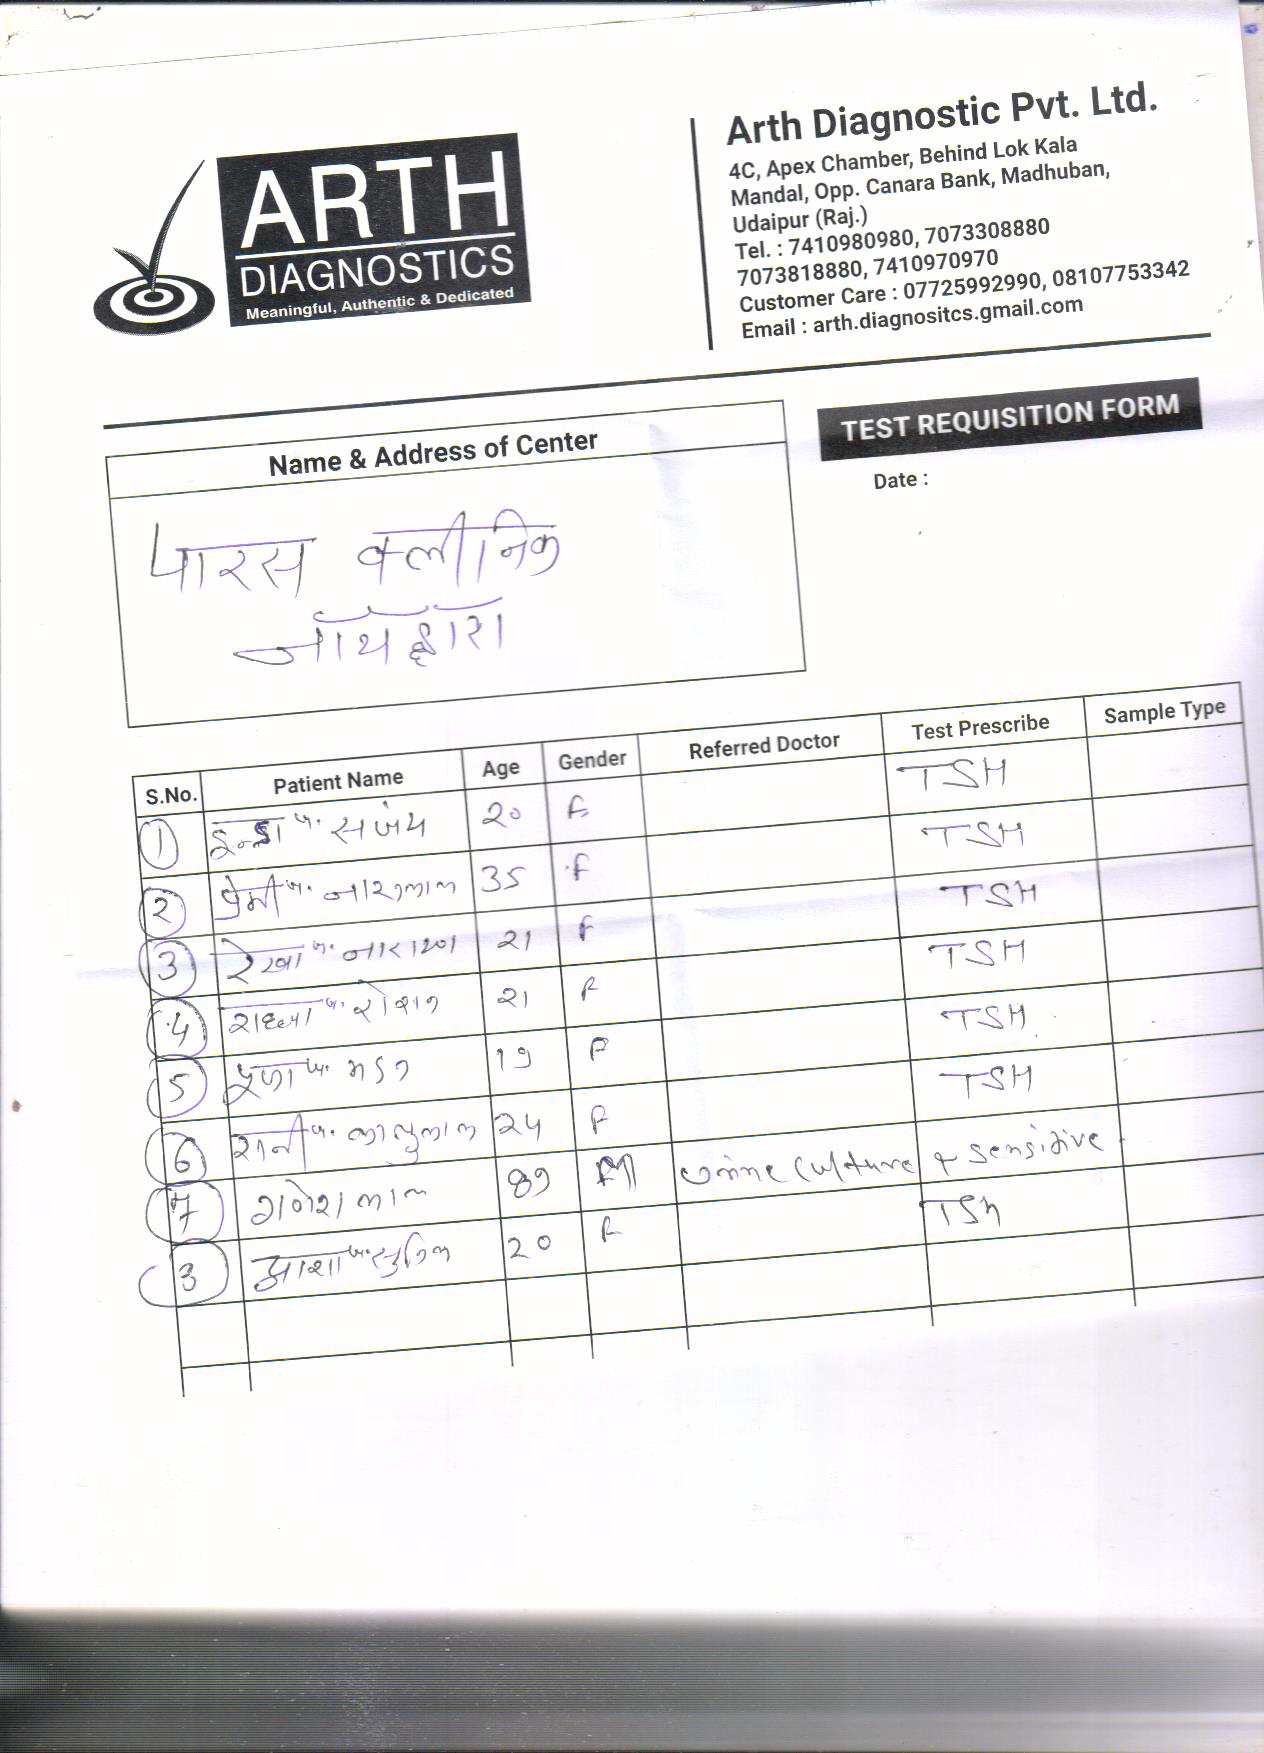 ARTH
DIAGNOSTICS
Meaningful, Authentic & Dedicated
Arth Diagnostic Pvt. Ltd.
4C, Apex Chamber, Behind Lok Kala
Mandal, Opp. Canara Bank, Madhuban,
Udaipur (Raj.)
Tel. : 7410980980, 7073308880
7073818880, 7410970970
Customer Care : 07725992990, 08107753342
Email : arth.diagnositcs.gmail.com
TEST REQUISITION FORM
Date :
Name & Address of Center
पारस क्लीनिक
नाथद्वारा
S.No. Patient Name Age Gender Referred Doctor Test Prescribe Sample Type
1 संजय 20 F TSH
2 प्रेमी 35 F TSH
3 रेखा नारायण 21 F TSH
4 रोशन 21 F TSH
5 पूजा 19 F TSH
6 रानी 24 F TSH
7 गणेश लाल M Urine Culture & Sensitive
आशा 20 F TSH